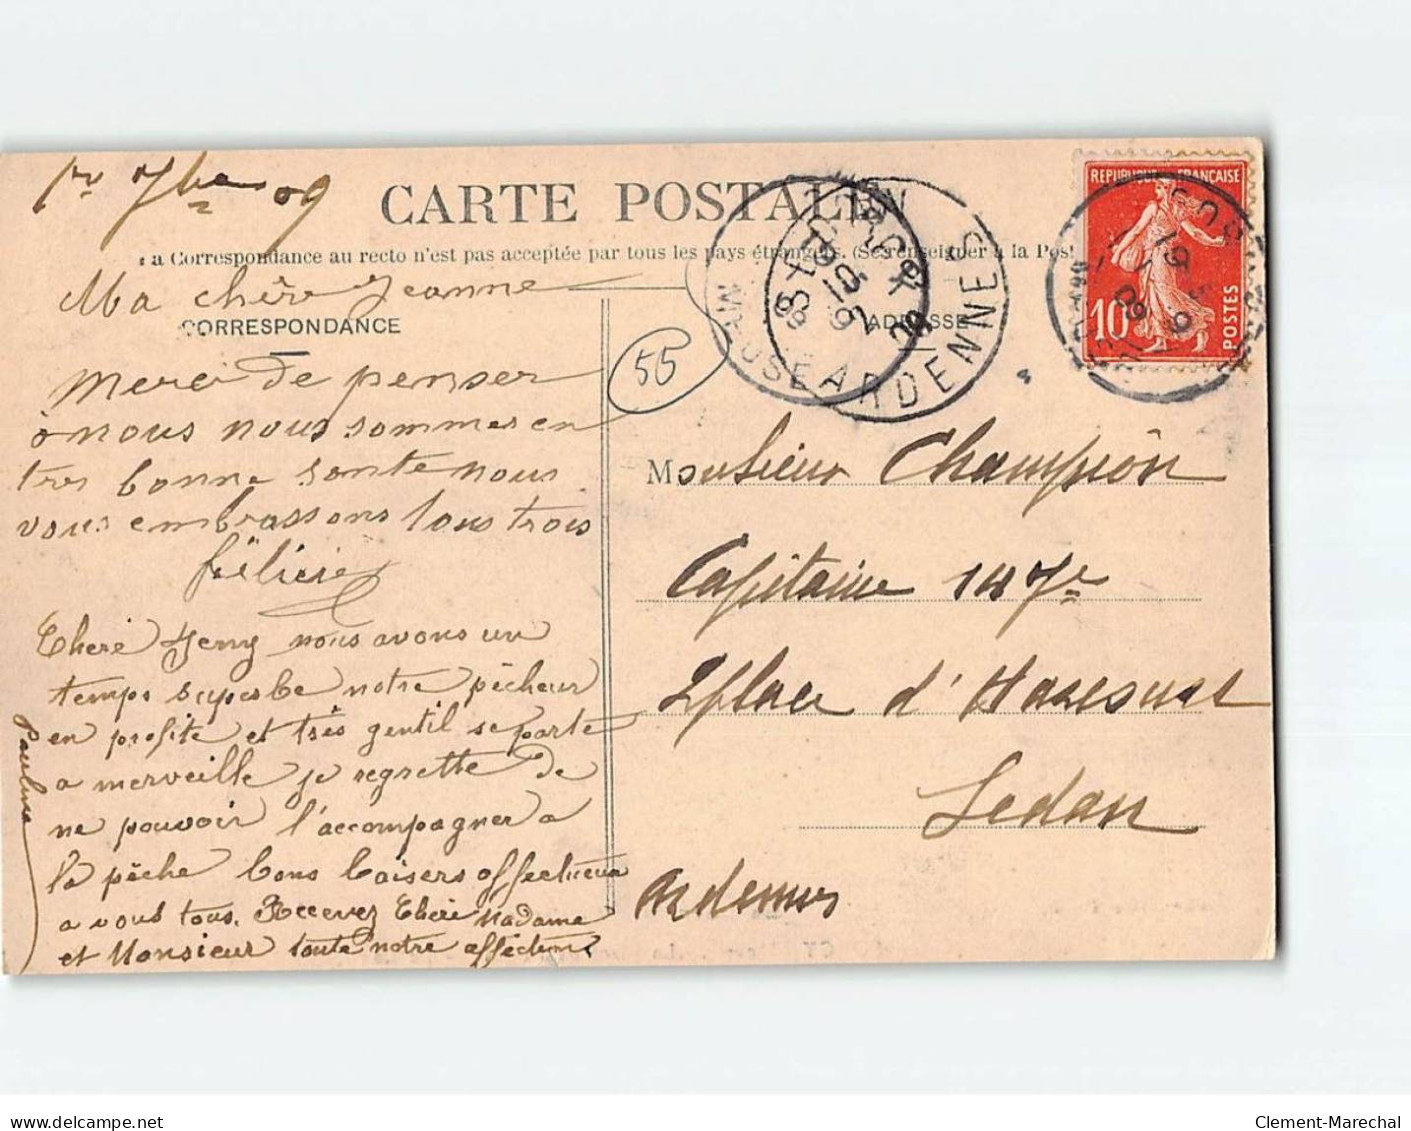 1er 7bre 09
CARTE POSTALE
La Correspondance au recto n'est pas acceptée par tous les pays étrangers. (Se renseigner à la Post
Ma chère Jeanne
CORRESPONDANCE
ADRESSE
55
Merci de penser
à nous nous sommes en
tres bonne sante nous
vous embrassons tous trois
Félicie
Chere Jeny nous avons un
temps superbe notre pêcheur
en profite et très gentil se porte
a merveille je regrette de
ne pouvoir l'accompagner a
la pêche bons baisers affectueux
a vous tous. Recevez Chère Madame
et Monsieur toute notre affection
Pauline
Monsieur Champion
Capitaine 147e
2 place d'
Sedan
Ardennes
REPUBLIQUE FRANÇAISE
10
POSTES
MEUSE
ARDENNE
09
Clement-Marechal